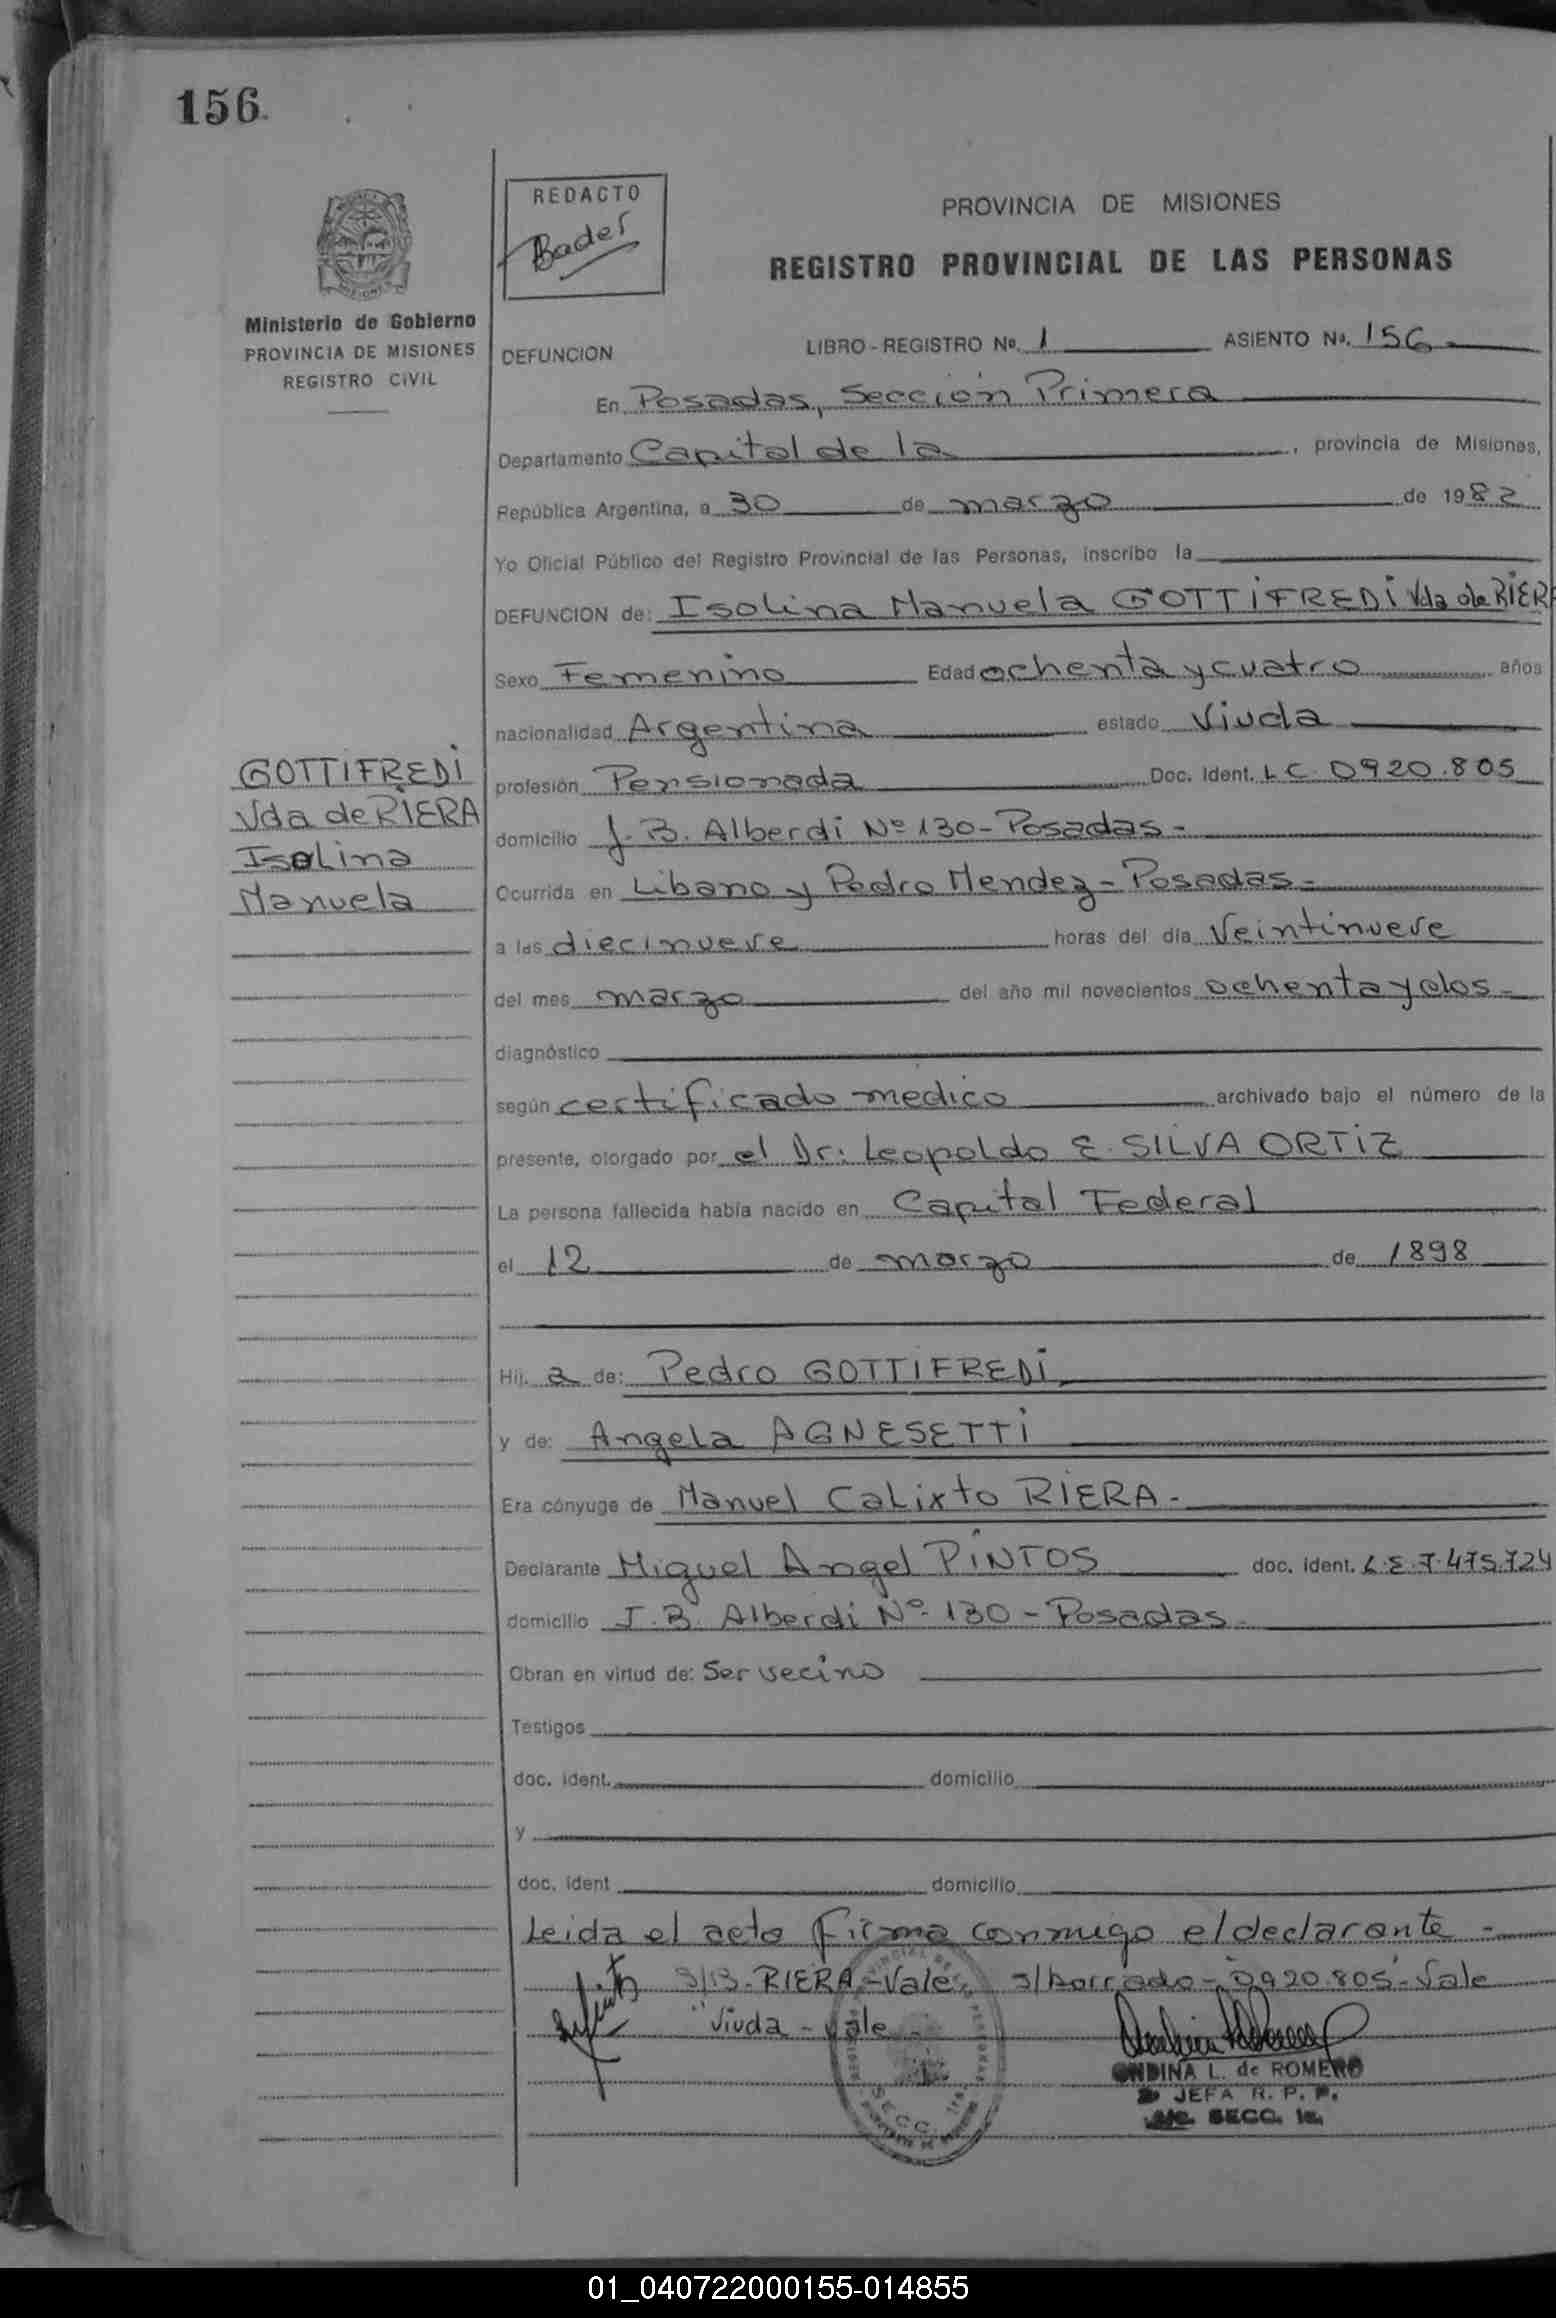 156
REDACTO
Bader
PROVINCIA DE MISIONES
REGISTRO PROVINCIAL DE LAS PERSONAS
MISIONES
Ministerio de Gobierno
PROVINCIA DE MISIONES
REGISTRO CIVIL
DEFUNCION LIBRO-REGISTRO Nº. 1 ASIENTO Nº. 156
En Posadas, Sección Primera
Departamento Capital de la, provincia de Misiones,
República Argentina, a 30 de marzo de 1982
Yo Oficial Público del Registro Provincial de las Personas, inscribo la
DEFUNCION de: Isolina Manuela GOTTIFREDI Vda de RIERA
Sexo Femenino Edad ochenta y cuatro años
nacionalidad Argentina estado Viuda
profesión Pensionada Doc. Ident. LC. 0920.805
domicilio J. B. Alberdi Nº 130 - Posadas -
Ocurrida en Libano y Pedro Mendez - Posadas -
a las diecinueve horas del día Veintinueve
del mes marzo del año mil novecientos ochenta y dos -
diagnóstico
según certificado medico archivado bajo el número de la
presente, otorgado por el Dr: Leopoldo E. SILVA ORTIZ
La persona fallecida había nacido en Capital Federal
el 12 de marzo de 1898
Hij. a de: Pedro GOTTIFREDI
y de: Angela AGNESETTI
Era cónyuge de Manuel Calixto RIERA -
Declarante Miguel Angel PINTOS doc. ident. L.E. 7.475.724
domicilio J. B. Alberdi Nº 130 - Posadas -
Obran en virtud de: Ser vecino
Testigos
doc. ident. domicilio
y
doc. ident domicilio
Leida el acto firma conmigo el declarante -
S/B. RIERA - Vale, s/borrado - 0920.805 - Vale
"Viuda - Vale -
ONDINA L. de ROMERO
JEFA R. P. P.
SECC. 1a.
GOTTIFREDI
Vda de RIERA
Isolina
Manuela
01_040722000155-014855